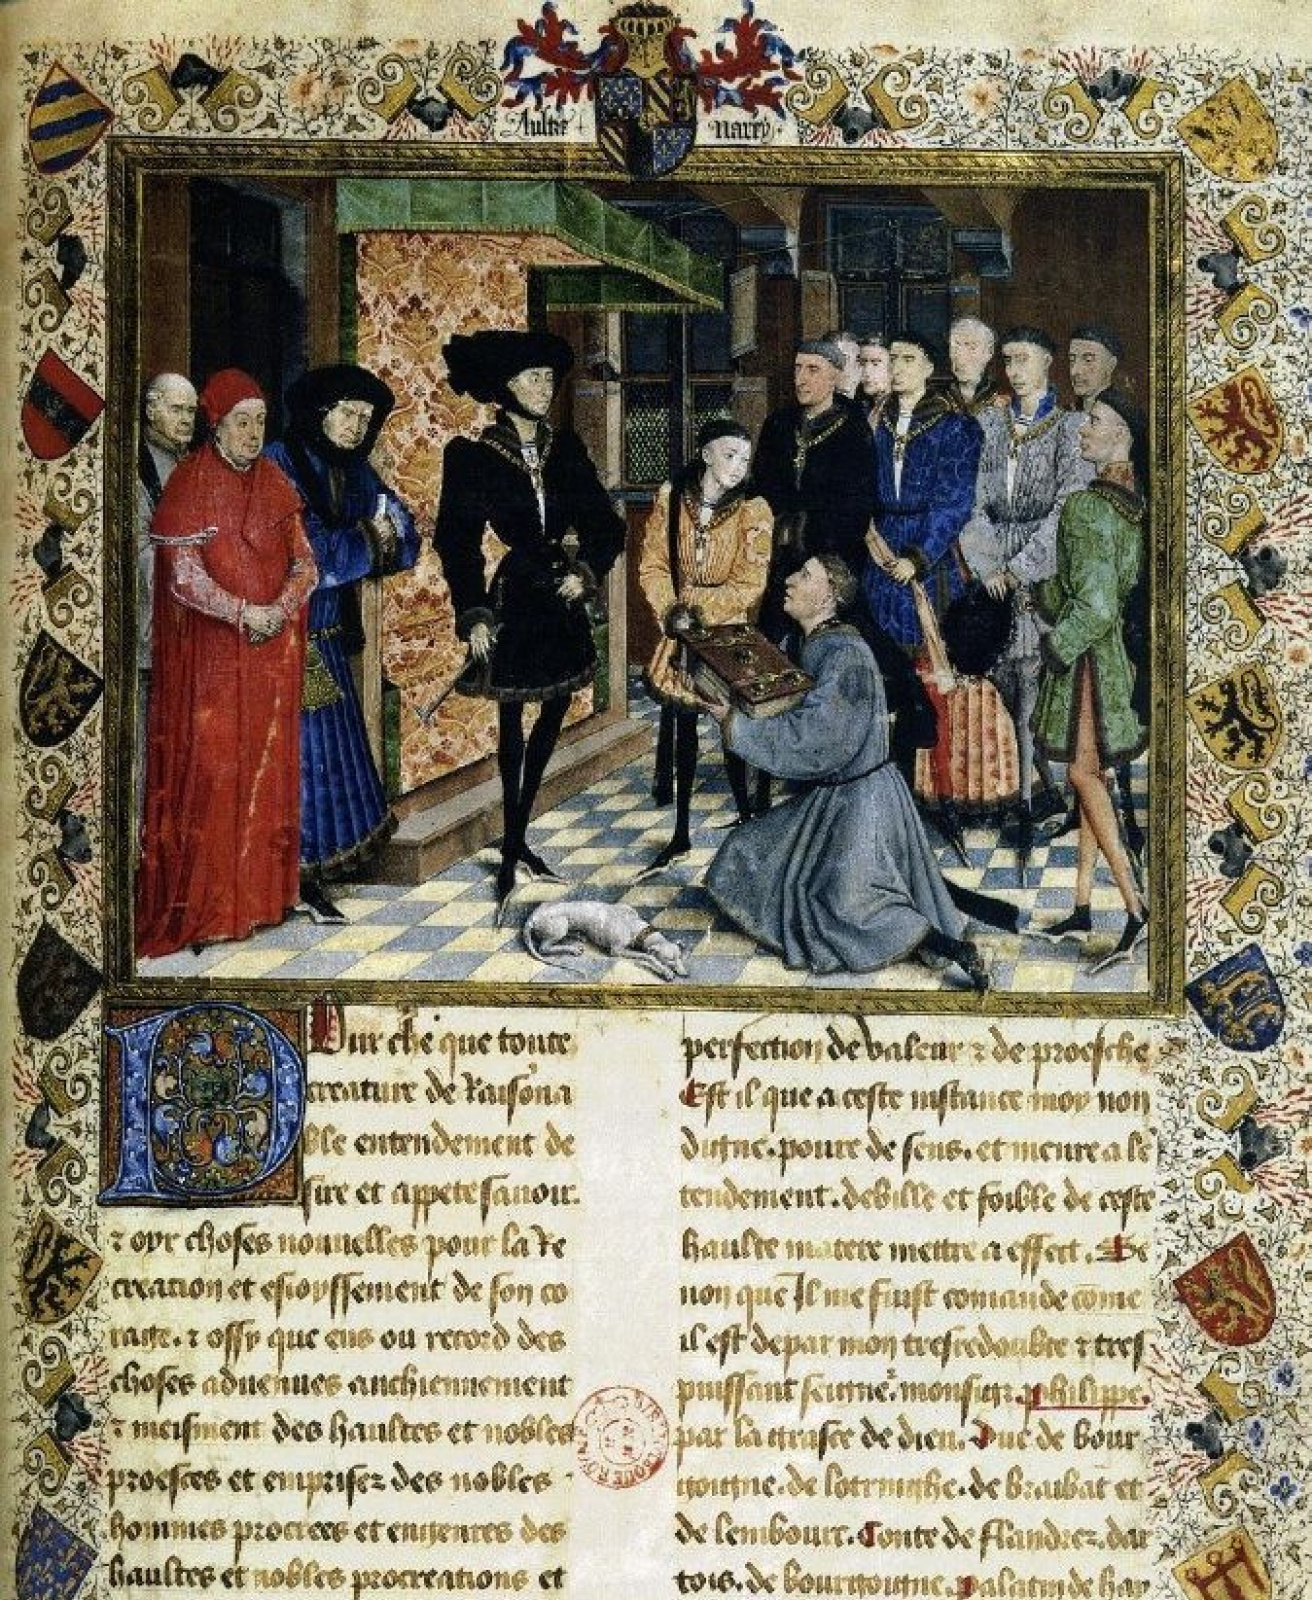 Aultre
narey
Pour che que toute
creature de Raisona
ble entendement de
sire et appete sauoir
⁊ oyr choses nouuelles pour la Re
creation et esioyssement de son co
rage. ⁊ ossy que ens ou record des
choses aduenues anchiennement
⁊ meisment des haultes et nobles
proesces et emprises des nobles
hommes procrees et engenres des
haultes et nobles procreations et
perfection de valeur ⁊ de proesche
Est il que a ceste instance moy non
digne. poure de sens. et meure a le
tendement. debille et foible de ceste
haulte matere mettre a effect. Se
non que Il me fuist comande come
il est de par mon tresredoubte ⁊ tres
puissant seigneur. monseigneur. phelippe.
par la grasce de dieu. Duc de bour
gongne. de lotringhe. de braibat et
de lembourc. Conte de flandres. dar
tois. de bourgongne. palatin de hay